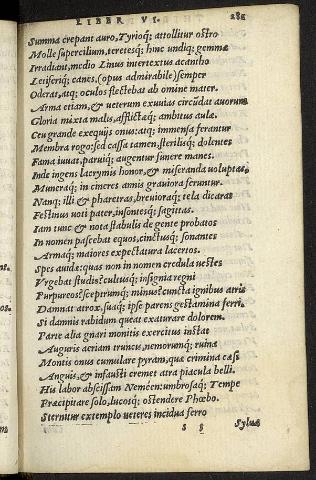 LIBER VI. 281
Summa crepant auro, Tyrioq; attollitur ostro
Molle supercilium, teretesq; hinc undiq; gemmæ
Irradiant, medio Linus intertextus acantho
Letiferiq; canes, (opus admirabile) semper
Oderat, atq; oculos flectebat ab omine mater.
Arma etiam, & ueterum exuuias circūdat auorum
Gloria mixta malis, afflictæq; ambitus aulæ.
Ceu grande exequijs onus: atq; immensa ferantur
Membra rogo: sed cassa tamen, sterilisq; dolentes
Fama iuuat, paruiq; augentur funere manes.
Inde ingens lacrymis honor, & miseranda uoluptas,
Muneraq; in cineres annis grauiora feruntur.
Nanq; illi & pharetras, breuioraq; tela dicaras
Festinus uoti pater, insontesq; sagittas.
Iam tunc & nota stabulis de gente probatos
In nomen pascebat equos, cinctusq; sonantes
Armaq; maiores expectatura lacertos.
Spes auidæ: quas non in nomen credula uestes
Vrgebat studijs? cultusq; insignia regni
Purpureos? sceptrumq; minus? cuncta ignibus atris
Damnat atrox, suaq; ipse parens gestamina ferri.
Si damnis rabidum queat exaturare dolorem.
Parte alia gnari monitis exercitus instat
Auguris aeriam truncis, nemorumq; ruina
Montis onus cumulare pyram, quæ crimina cæsi
Anguis, & infausti cremet atra piacula belli.
His labor abscissam Nemeen: umbrosaq; Tempe
Præcipitare solo, lucosq; ostendere Phœbo.
Sternitur extemplo ueteres incidua ferro
Syluæ